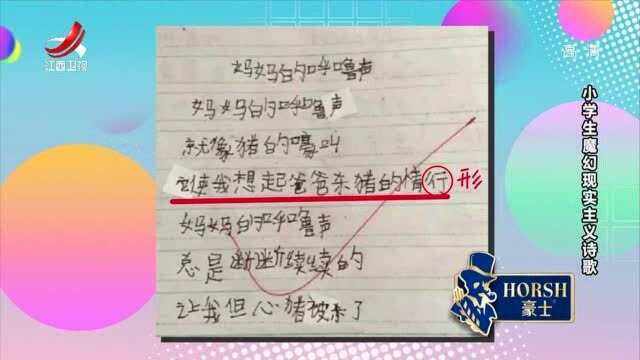 江西卫视
高清
小学生魔幻现实主义诗歌
妈妈的呼噜声
妈妈的呼噜声
就像猪的嚎叫
它使我想起爸爸杀猪的情行
形
妈妈的呼噜声
总是断断续续的
让我但心猪被杀了
HORSH
豪士